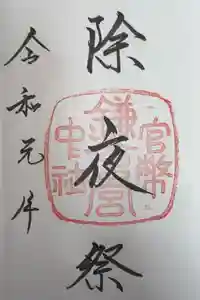 除夜祭
官幣
鎌倉宮
中社
令和元年